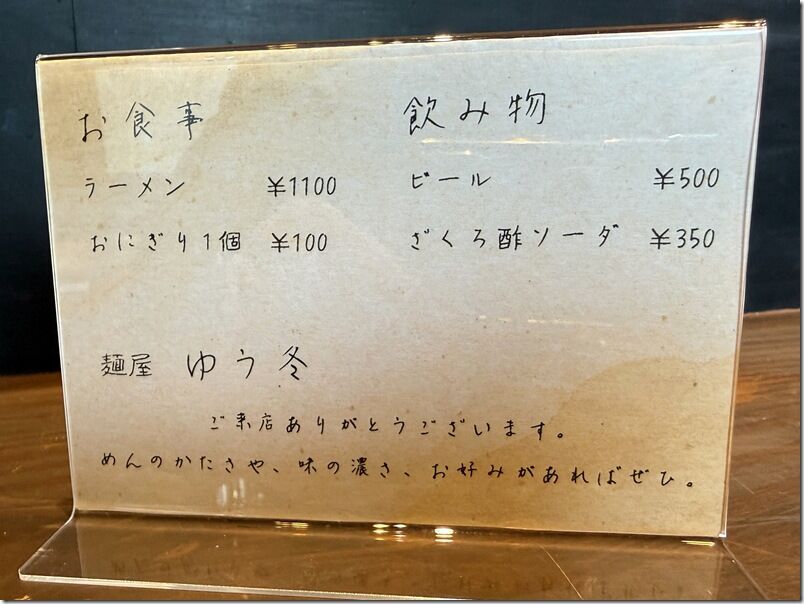 お食事
ラーメン ¥1100
おにぎり1個 ¥100
飲み物
ビール ¥500
ざくろ酢ソーダ ¥350
麺屋 ゆう冬
ご来店ありがとうございます。
めんのかたさや、味の濃さ、お好みがあればぜひ。